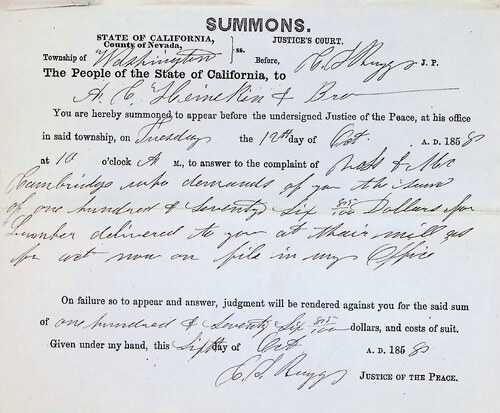 SUMMONS.
STATE OF CALIFORNIA,
County of Nevada,
ss.
JUSTICE'S COURT.
Township of Washington
Before, C. S. Ruggs J. P.
The People of the State of California, to
A. C. Heinekin & Bro
You are hereby summoned to appear before the undersigned Justice of the Peace, at his office
in said township, on Tuesday the 12th day of Oct A. D. 1858
at 10 o'clock A M., to answer to the complaint of & Mc
Cambridge who demands of you the sum
of one hundred & Seventy Six 85/100 Dollars for
Lumber delivered to you at thair mill as
pr act now on file in my Office
On failure so to appear and answer, judgment will be rendered against you for the said sum
of one hundred & Seventy Six 85/100 dollars, and costs of suit.
Given under my hand, this Sixth day of Oct A. D. 1858
C. S. Ruggs JUSTICE OF THE PEACE.